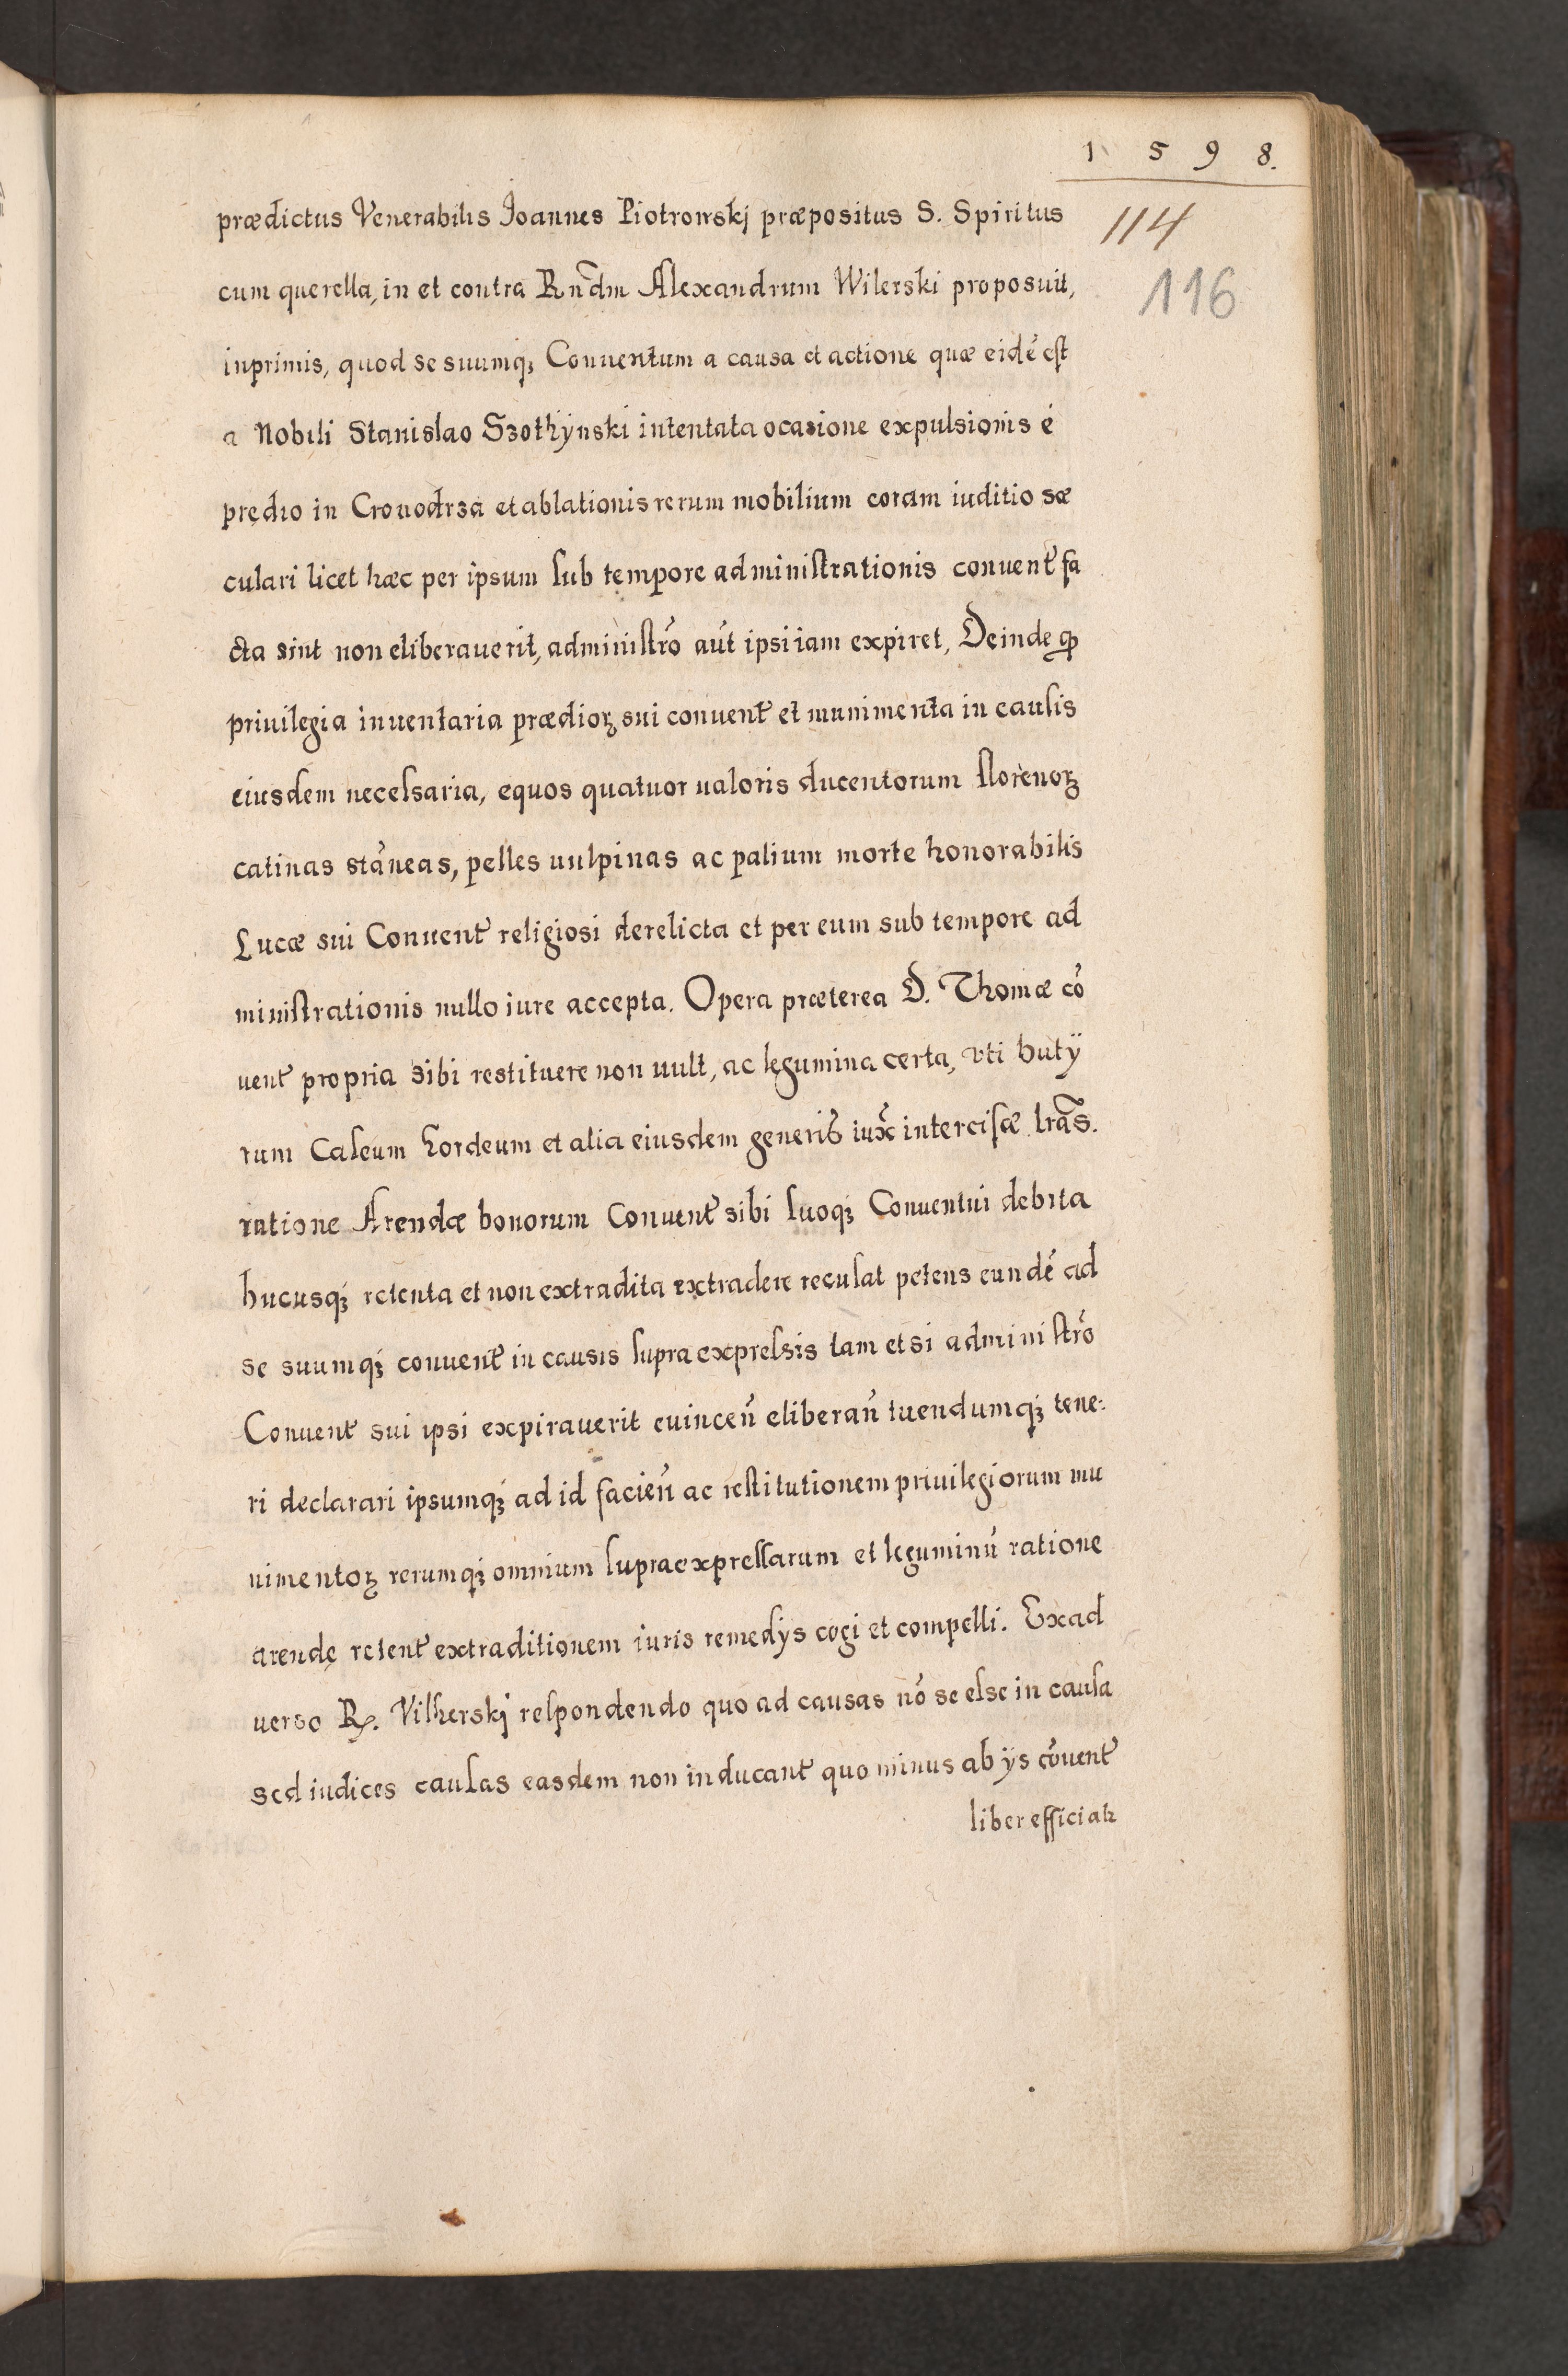 1 5 9 8.
114
116
prædictus Venerabilis Joannes Piotrowskj præpositus S. Spiritus
cum querella, in et contra Rnd̄m Alexandrum Wilerski proposuit,
inprimis, quod se suumqꝫ Conuentum a causa et actione quæ eidē est
a Nobili Stanislao Szothÿnski intentata ocasione expulsionis é
prędio in Crouodrza et ablationis rerum mobilium coram iuditio sæ
culari licet hæc per ipsum sub tempore administrationis conuent̃ fa
cta sint non eliberauerit, administrō aūt ipsi iam expiret, Deinde ꝙ
priuilegia inuentaria prædioꝝ sui conuent̃ et munimenta in causis
eiusdem necessaria, equos quatuor ualoris ducentorum florenoꝝ
catinas stāneas, pelles uulpinas ac palium morte honorabilis
Lucæ sui Conuent̃ religiosi derelicta et per eum sub tempore ad
ministrationis nullo iure accepta. Opera præterea D. Thomæ cō
uent̃ propria sibi restituere non uult, ac legumina certa, vti butÿ
rum Caseum hordeum et alia eiusdem generis iux̄ intercisæ lrās.
ratione Arendæ bonorum Conuent̃ sibi suoqꝫ Conuentui debita
hucusqꝫ retenta et non extradita extradere recusat petens eundē ad
se suumqꝫ conuent̃ in causis supra expressis tam etsi administrō
Conuent̃ sui ipsi expirauerit euinceñ eliberañ tuendumqꝫ tene:
ri declarari ipsumqꝫ ad id facieñ ac restitutionem priuilegiorum mu
nimentoꝝ rerumqꝫ omnium supraexpressarum et leguminū ratione
arendę retent̃ extraditionem iuris remedÿs cogi et compelli. Ex ad
uerso R. Vilkerskj respondendo quo ad causas nō se esse in causa
sed iudices causas easdem non inducant̃ quo minus ab ÿs cōuent̃
liber efficiatꝛ